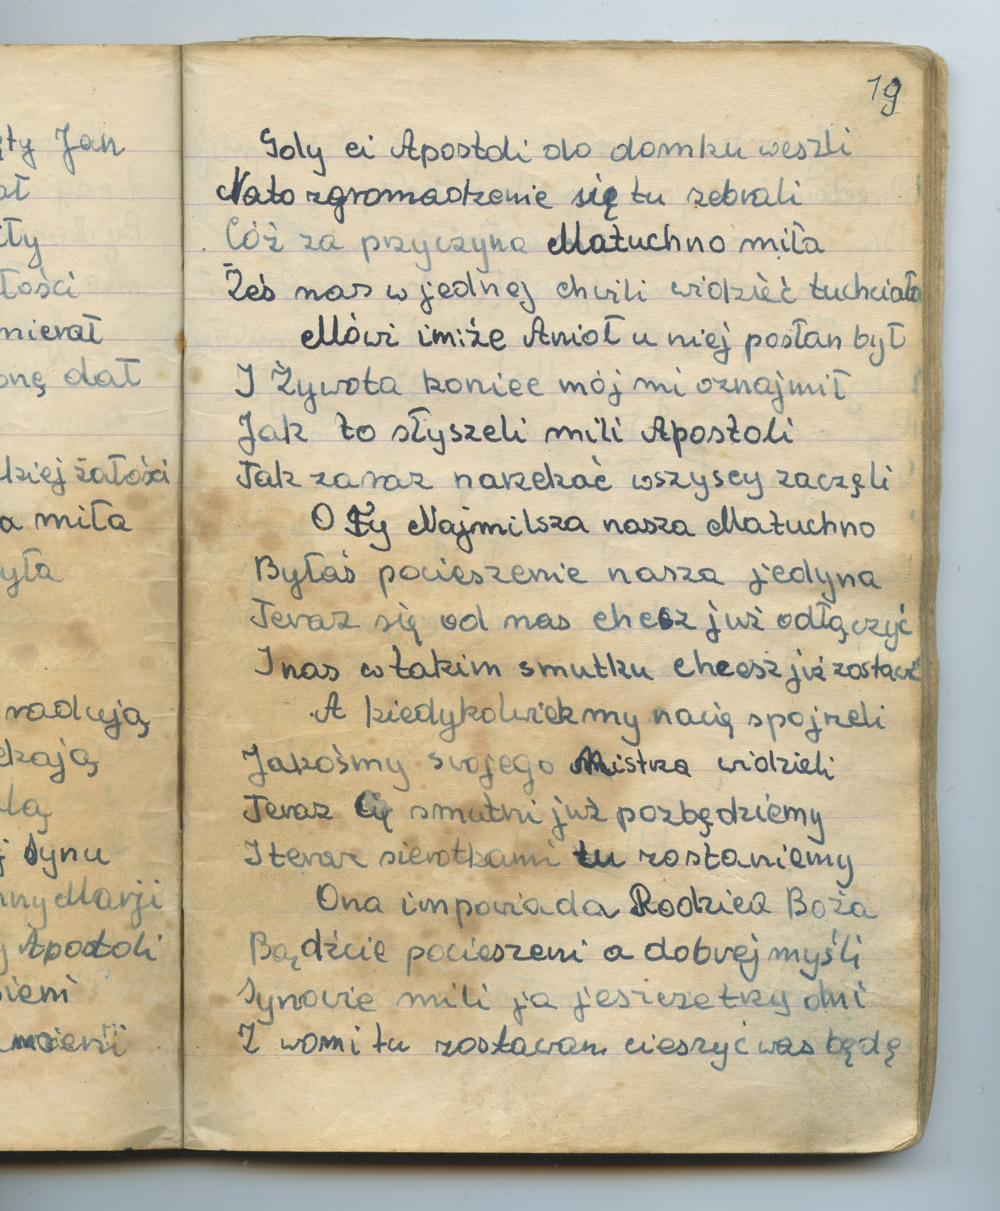 ęty Jan
ał
iły
łości
mierał
onę dał
dziej żałości
a miła
yła
radują
ekają
lą
j synu
nny Marji
y Apostoli
sieni
19
Gdy ci Apostoli do domku weszli
Nato zgromadzenie się tu zebrali
Cóż za przyczyna Matuchno miła
Żeś nas w jednej chwili widzieć tuchciała
Mówi imiże Anioł u niej posłan był
I Żywota koniec mój mi oznajmił
Jak to słyszeli mili Apostoli
Tak zaraz narzekać wszyscy zaczęli
O Ty Najmilsza nasza Matuchno
Byłaś pocieszenie nasza jedyna
Teraz się od nas chcesz już odłączyć
I nas w takim smutku chcesz już zostawić
A kiedykolwiek my nacię spojrzeli
Jakośmy swojego Mistrza widzieli
Teraz Cię smutni już pozbędziemy
I teraz sierotkami tu zostaniemy
Ona impowiada Rodzica Boża
Bądźcie pocieszeni a dobrej myśli
Synowie mili ja jeszcze trzy dni
Z wami tu zostawam cieszyć was będę